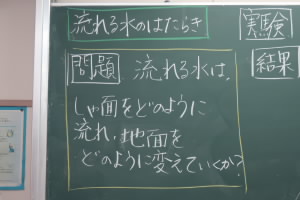 流れる水のはたらき
実験
問題 流れる水は、
結果
しゃ面をどのように
流れ、地面を
どのように変えていくか?